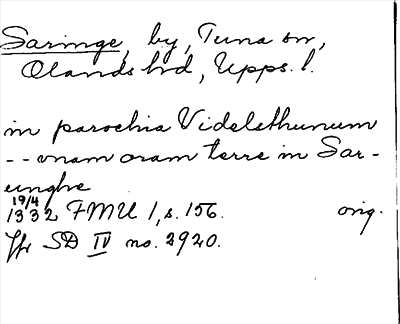 Saringe, by, Tuna sn,
Olands hd, Upps. l.
in parochia Videlsthunum
-- vnam oram terre in Sar-
eunghe
19/4
1332 FMU 1, s. 156. orig.
Jfr SD IV no. 2920.